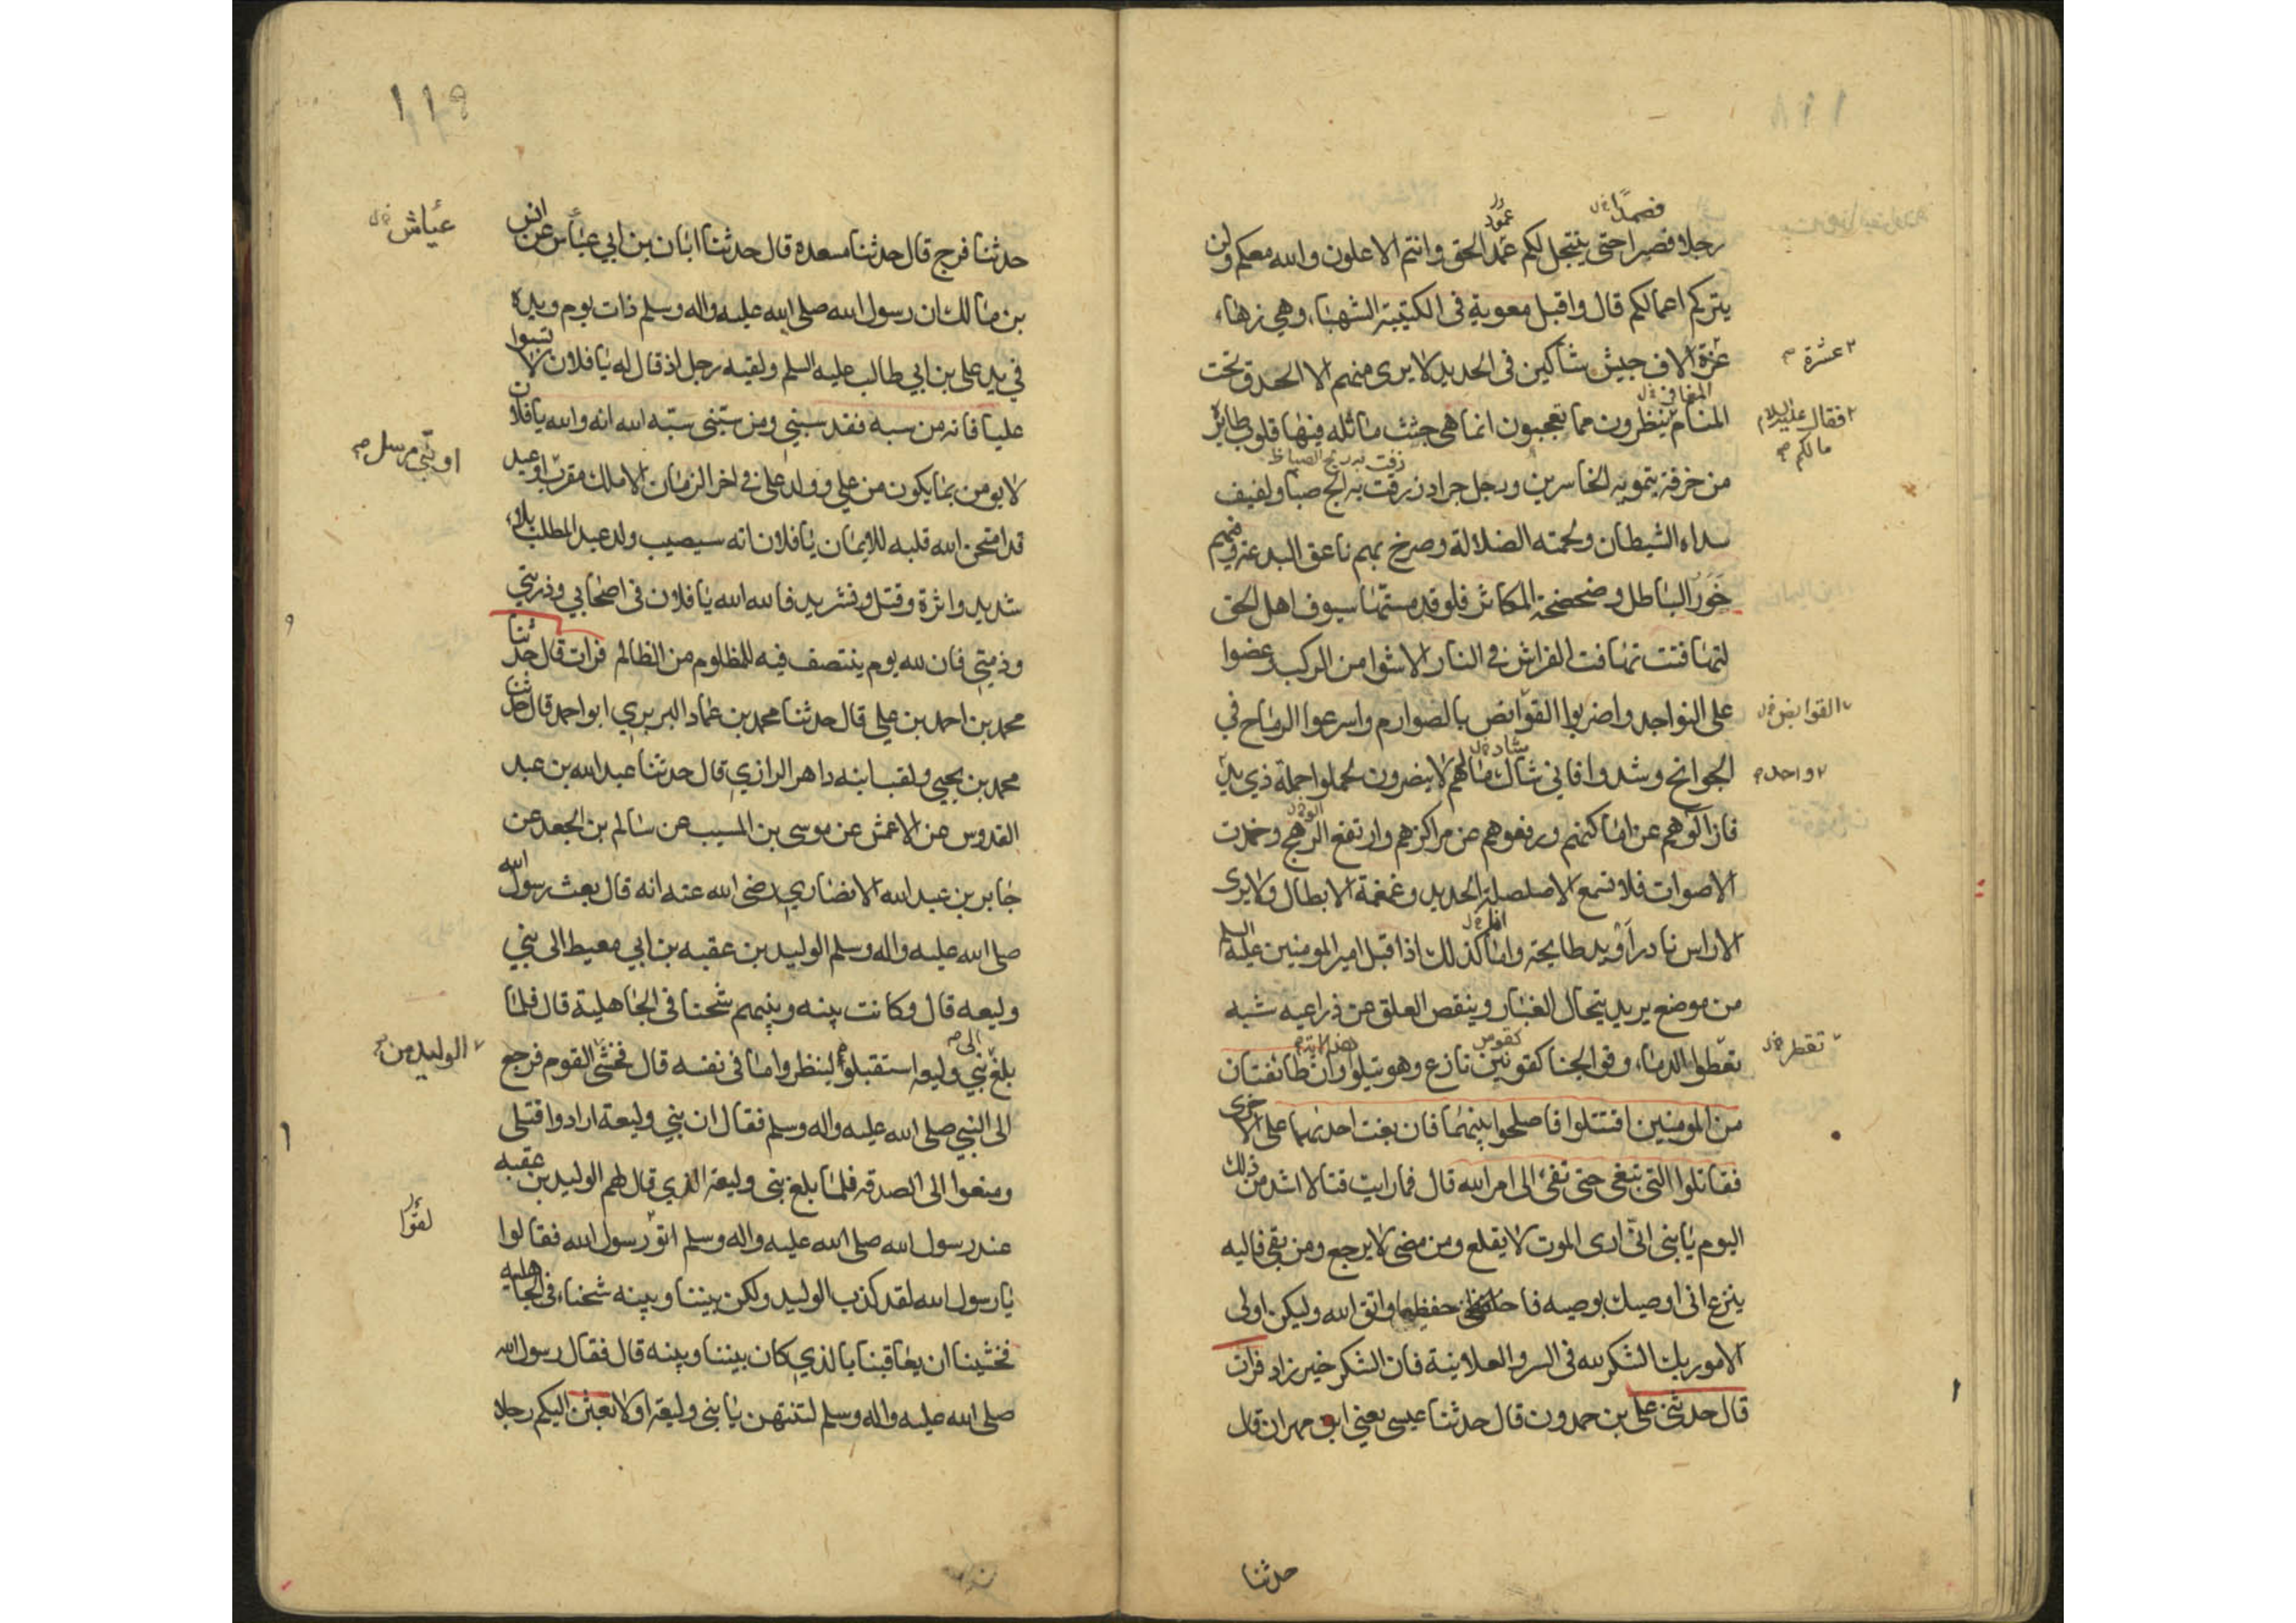 رجلا فصبرا حتى ينجلي لكم عمد الحق وانتم الاعلون والله معكم ولن
يتركم اعمالكم قال واقبل معوية في الكتيبة الشهباء وهي زهاء
عشرة الاف جيش شاكين في الحديد لا يرى منهم الا الحدق تحت
ينظرون مما تعجبون انما هي جثث ماثله فيها قلوب طايرة
من خرفة بتمويه الخاسرين ورجل جراد زفت به ريح صبا ولفيف
سداه الشيطان ولحمته الضلالة وصرخ بهم ناعق البدعة وفيهم
خور الباطل وضحضحة المكاثر فلو قد مستها سيوف اهل الحق
لتهافتت تهافت الفراش في النار الا شوا من الركب عضوا
على النواجد واضربوا القوانص بالصوارم واسرعوا الرماح في
الجوانح وشدوا فاني شاك مالهم لا ينصرون لحملوا حملة ذي يد
فازالوهم عن اماكنهم ورفعوهم عن مراكزهم وارتفع الرهج وخمدت
الاصوات فلا تسمع الا صلصلة الحديد وغمغمة الابطال ولا يرى
الا راس نادرا ويد طايحة وانا كذلك اذا قبل امير المومنين عليه السلم
من موضع يريد يتحال الغبار وينقص العلق عن ذراعيه شبه
الدماء وفو الجنا كقو نازع وهو يتلو وان طائفتان
من المومنين اقتتلوا فاصلحوا بينهما فان بغت احديهما على الاخرى
فقاتلوا التي تبغي حتى تفئ الى امر الله قال فما رايت قتالا اشد من ذلك
اليوم يا بني اني ارى الموت لا يقلع ومن مضى لا يرجع ومن بقي فاليه
ينزع اني اوصيك بوصيه واتق الله وليكن اولى
الامور بك الشكر لله في السر والعلانية فان الشكر خير زاد فرات
قال حدثني علي بن حمدون قال حدثنا عيسى يعني ابو مهران قال
حدثنا
فصمدا
عمود
عشرة
فقال عليه السلام
مالكم
القوابض
واحد
تقطر
١١٩
حدثنا فرج قال حدثنا مسعده قال حدثنا ابان بن ابي عياس عن انس
بن مالك ان رسول الله صلى الله عليه واله وسلم ذات يوم ويده
في يد علي بن ابي طالب عليه السلم ولقيه رجل اذ قال له يا فلان لا تسبوا
عليا فانه من سبه فقد سبني ومن سبني سبه الله انه والله يا فلان
لا يومن بما يكون من علي وولد علي في اخر الزمان الا ملك مقرب او عبد
قد امتحن الله قلبه للايمان يا فلان انه سيصيب ولد عبد المطلب بلاء
شديد واثرة وقتل وتشريد فالله الله يا فلان في اصحابي وذريتي
وذمتي فان لله يوم ينتصف فيه للمظلوم من الظالم فرات قال حدثنا
محمد بن احمد بن علي قال حدثنا محمد بن عماد البربري ابو احمد قال حدثنا
محمد بن يحيي ولقب ابنه داهر الرازي قال حدثنا عبد الله بن عبد
القدوس عن الاعمش عن موسى بن المسيب عن سالم بن الجعد عن
جابر بن عبد الله الانصاري رضي الله عنه انه قال بعث رسول الله
صلى الله عليه واله وسلم الوليد بن عقبه بن ابي معيط الى بني
وليعه قال وكانت بينه وبينهم شحنا في الجاهلية قال فلما
بلغ بني وليعه استقبلوه لينظروا ما في نفسه قال فخشى القوم فرجع
الى النبي صلى الله عليه واله وسلم فقال ان بني وليعة ارادوا قتلي
ومنعوا الى الصدقه فلما بلغ بني وليعة الذي قال لهم الوليد بن عقبه
عند رسول الله صلى الله عليه واله وسلم اتو رسول الله فقالوا
يا رسول الله لقد كذب الوليد ولكن بيننا وبينه شحناء في الجاهلية
فخشينا ان يعاقبنا بالذي كان بيننا وبينه قال فقال رسول الله
صلى الله عليه واله وسلم لتنتهن يا بني وليعة او لا بعثن اليكم رجلا
عياش
او نبي مرسل
الوليد من
لقوا